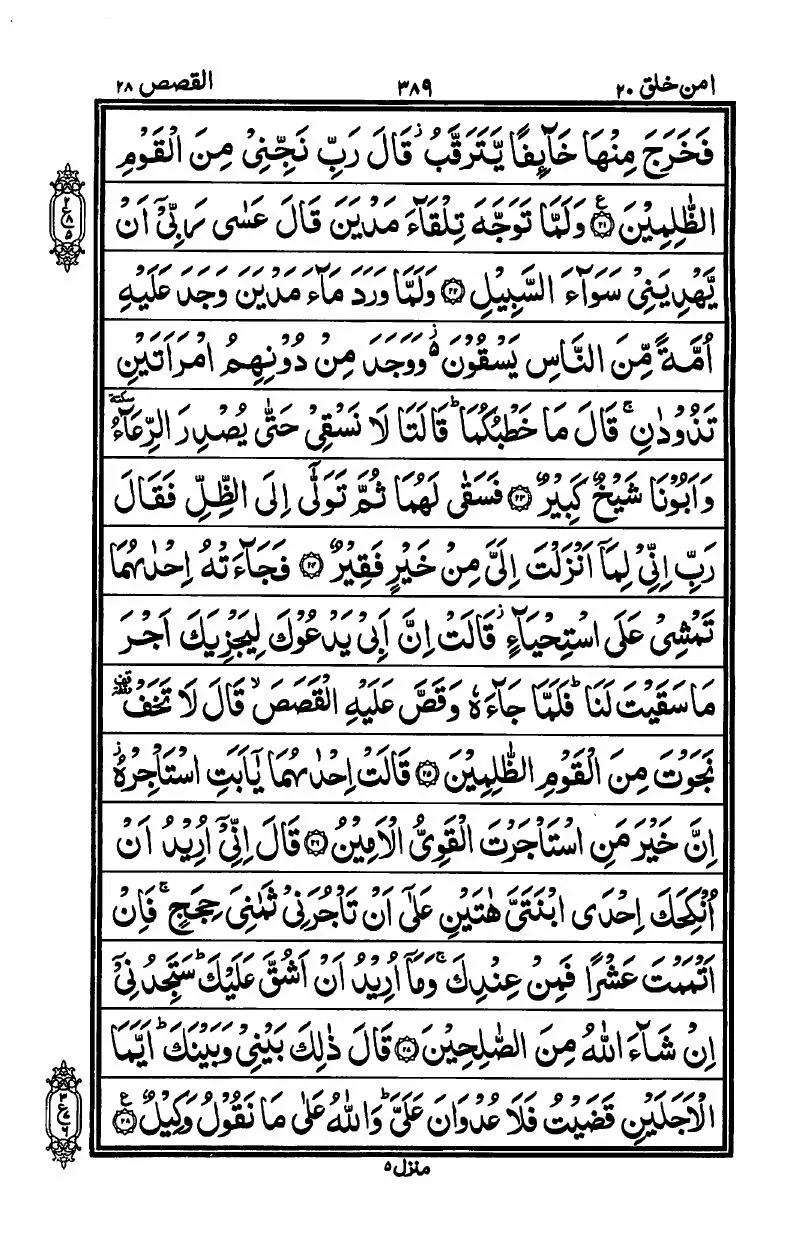 امن خلق ۲۰ ۳۸۹ القصص ۲۸
فَخَرَجَ مِنْهَا خَآئِفًا يَّتَرَقَّبُ ۫ قَالَ رَبِّ نَجِّنِيْ مِنَ الْقَوْمِ
الظّٰلِمِيْنَ ۟ع ۲۱ وَلَمَّا تَوَجَّهَ تِلْقَآءَ مَدْيَنَ قَالَ عَسٰى رَبِّيْٓ اَنْ
يَّهْدِيَنِيْ سَوَآءَ السَّبِيْلِ ۲۲ وَلَمَّا وَرَدَ مَآءَ مَدْيَنَ وَجَدَ عَلَيْهِ
اُمَّةً مِّنَ النَّاسِ يَسْقُوْنَ ۵ ز وَوَجَدَ مِنْ دُوْنِهِمُ امْرَاَتَيْنِ
تَذُوْدٰنِ ۚ قَالَ مَا خَطْبُكُمَا ؕ قَالَتَا لَا نَسْقِيْ حَتّٰى يُصْدِرَ الرِّعَآءُ سكتة
وَاَبُوْنَا شَيْخٌ كَبِيْرٌ ۲۳ فَسَقٰى لَهُمَا ثُمَّ تَوَلّٰٓى اِلَى الظِّلِّ فَقَالَ
رَبِّ اِنِّيْ لِمَآ اَنْزَلْتَ اِلَيَّ مِنْ خَيْرٍ فَقِيْرٌ ۲۴ فَجَآءَتْهُ اِحْدٰىهُمَا
تَمْشِيْ عَلَى اسْتِحْيَآءٍ ز قَالَتْ اِنَّ اَبِيْ يَدْعُوْكَ لِيَجْزِيَكَ اَجْرَ
مَا سَقَيْتَ لَنَا ؕ فَلَمَّا جَآءَهٗ وَقَصَّ عَلَيْهِ الْقَصَصَ ۙ قَالَ لَا تَخَفْ
نَجَوْتَ مِنَ الْقَوْمِ الظّٰلِمِيْنَ ۲۵ قَالَتْ اِحْدٰىهُمَا يٰٓاَبَتِ اسْتَاْجِرْهُ ز
اِنَّ خَيْرَ مَنِ اسْتَاْجَرْتَ الْقَوِيُّ الْاَمِيْنُ ۲۶ قَالَ اِنِّيْٓ اُرِيْدُ اَنْ
اُنْكِحَكَ اِحْدَى ابْنَتَيَّ هٰتَيْنِ عَلٰٓى اَنْ تَاْجُرَنِيْ ثَمٰنِيَ حِجَجٍ ۚ فَاِنْ
اَتْمَمْتَ عَشْرًا فَمِنْ عِنْدِكَ ۚ وَمَآ اُرِيْدُ اَنْ اَشُقَّ عَلَيْكَ ؕ سَتَجِدُنِيْٓ
اِنْ شَآءَ اللّٰهُ مِنَ الصّٰلِحِيْنَ ۲۷ قَالَ ذٰلِكَ بَيْنِيْ وَبَيْنَكَ ؕ اَيَّمَا
الْاَجَلَيْنِ قَضَيْتُ فَلَا عُدْوَانَ عَلَيَّ ؕ وَاللّٰهُ عَلٰى مَا نَقُوْلُ وَكِيْلٌ ع ۲۸
منزل ۵